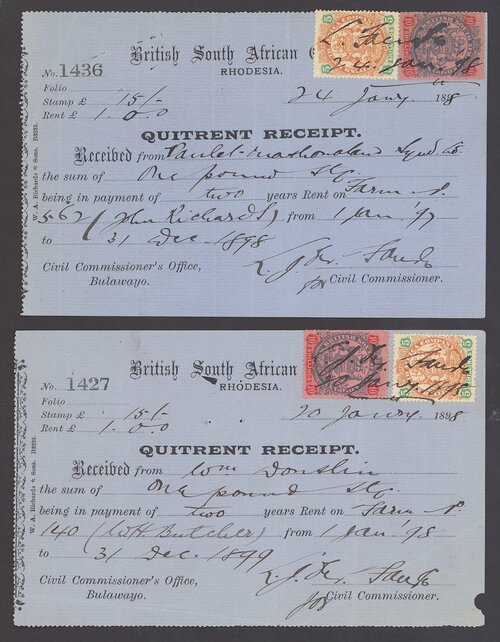 British South African C
RHODESIA.
No. 1436
Folio
Stamp £ 15/-
Rent £ 1.0.0
24 Jany 1898
QUITRENT RECEIPT.
Received from Mashonaland Synd Co
the sum of One pound Stg.
being in payment of two years Rent on Farm
562 (John Richards) from 1 Jan. '97
to 31 Dec. 1898
Civil Commissioner's Office,
Bulawayo.
for Civil Commissioner.
W. A. Richards & Sons.
British South African
RHODESIA.
No. 1427
Folio
Stamp £ 15/-
Rent £ 1.0.0
20 Jany 1898
QUITRENT RECEIPT.
Received from Wm
the sum of One pound Stg.
being in payment of two years Rent on Farm
140 (W.H. Butcher) from 1 Jan '98
to 31 Dec. 1899
Civil Commissioner's Office,
Bulawayo.
for Civil Commissioner.
W. A. Richards & Sons.